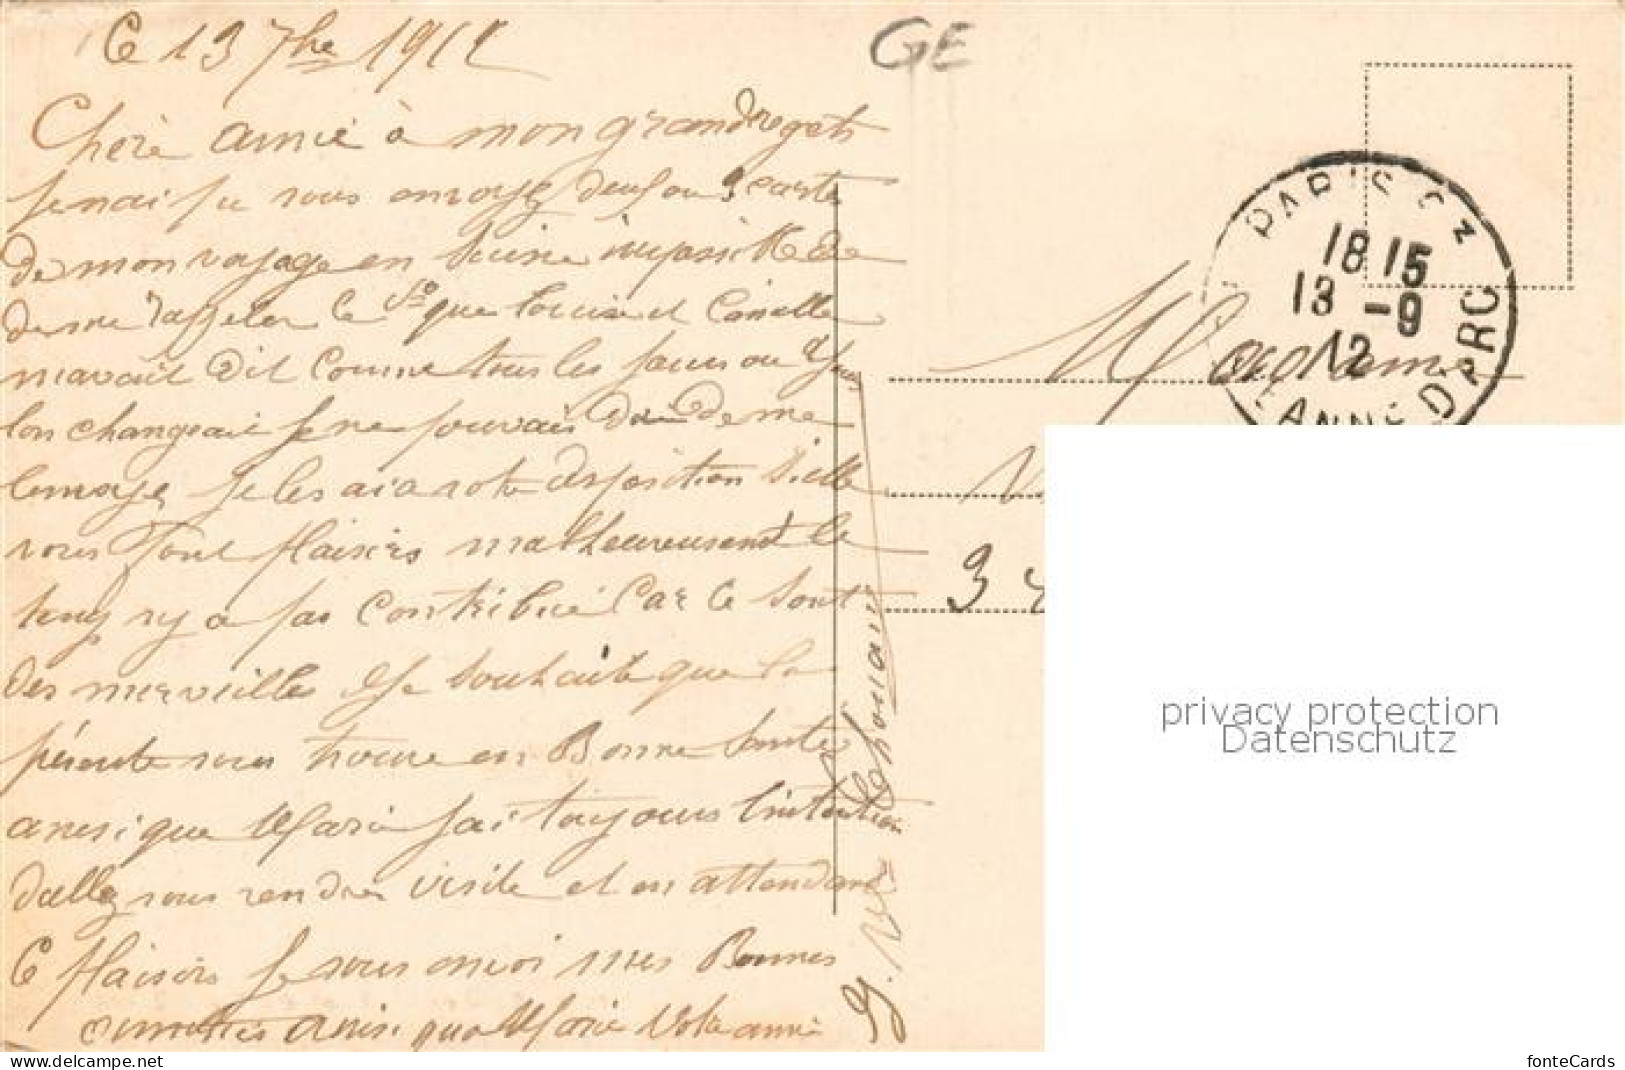 Le 13 7bre 1912
GE
Chère amie à mon grand regets
je nai pu vous envoyez deux ou 3 carte
de mon voyage en Suisse impossible
de me rappeler le No que Louise et
mavait dit comme tous les jours ou
lon changeait je ne pouvais de me
je les ai a votre desposition si elle
vous font plaisirs malheureusement le
temps ny a pas contribué Car ce sont
des merveilles Je souhaite que la
présente vous trouve en Bonne Santé
ainsi que Maria jai toujours lintention
dallez vous rendre visite et en attendant
Ce plaisirs je vous envoi mes Bonnes
amitiés ainsi que Marie Votre amie
PARIS
18 15
13 -9
12
JEANNE D'ARC
Madame
3
privacy protection
Datenschutz
fonteCards